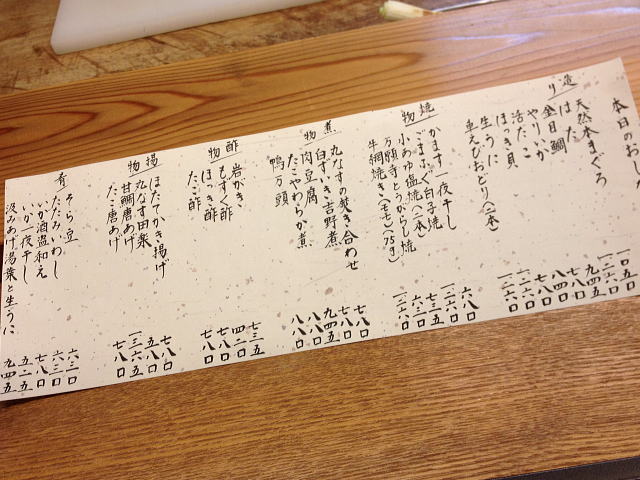 本日のお
造り
天然本まぐろ
はた
金目鯛
やりいか
活だこ
ほっき貝
生うに
車えびおどり(二本)
焼物
かます一夜干し
ごまふぐ白子焼
小あゆ塩焼(二本)
万願寺とうがらし焼
牛網焼き(モモ)(75g)
一二六〇
六八〇
煮物
丸なすの焚き合わせ
白ずいき吉野煮
肉豆腐
たこやわらか煮
鴨万頭
七八〇
七八〇
九四五
八八〇
八八〇
酢物
岩がき
もずく酢
ほっき酢
たこ酢
七三五
四二〇
七八〇
七八〇
揚物
ほたてかき揚げ
丸なす田楽
甘鯛唐あげ
たこ唐あげ
七八〇
五八〇
一三六五
七八〇
肴
そら豆
たたみいわし
いか酒盗和え
いか一夜干し
汲みあげ湯葉と生うに
六三〇
六三〇
七八〇
五二五
九四五